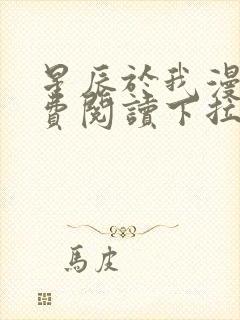 星辰於我漫
費閱讀下拉
馬皮